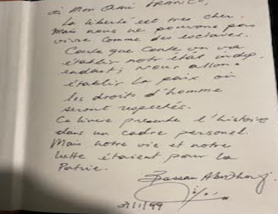 à Mon Ami FRANCK,
La liberté est très cher.
Mais nous ne pouvons pas
vivre comme des esclaves.
Coute que Coute on va
établir notre état indép.
endant, nous allons
établir la paix où
les droits d'homme
seront respectés.
Ce livre présente l'histoire
dans un cadre personel.
Mais notre vie et notre
lutte étaient pour la
Patrie.
Bassam Abu Sharif
/1/99